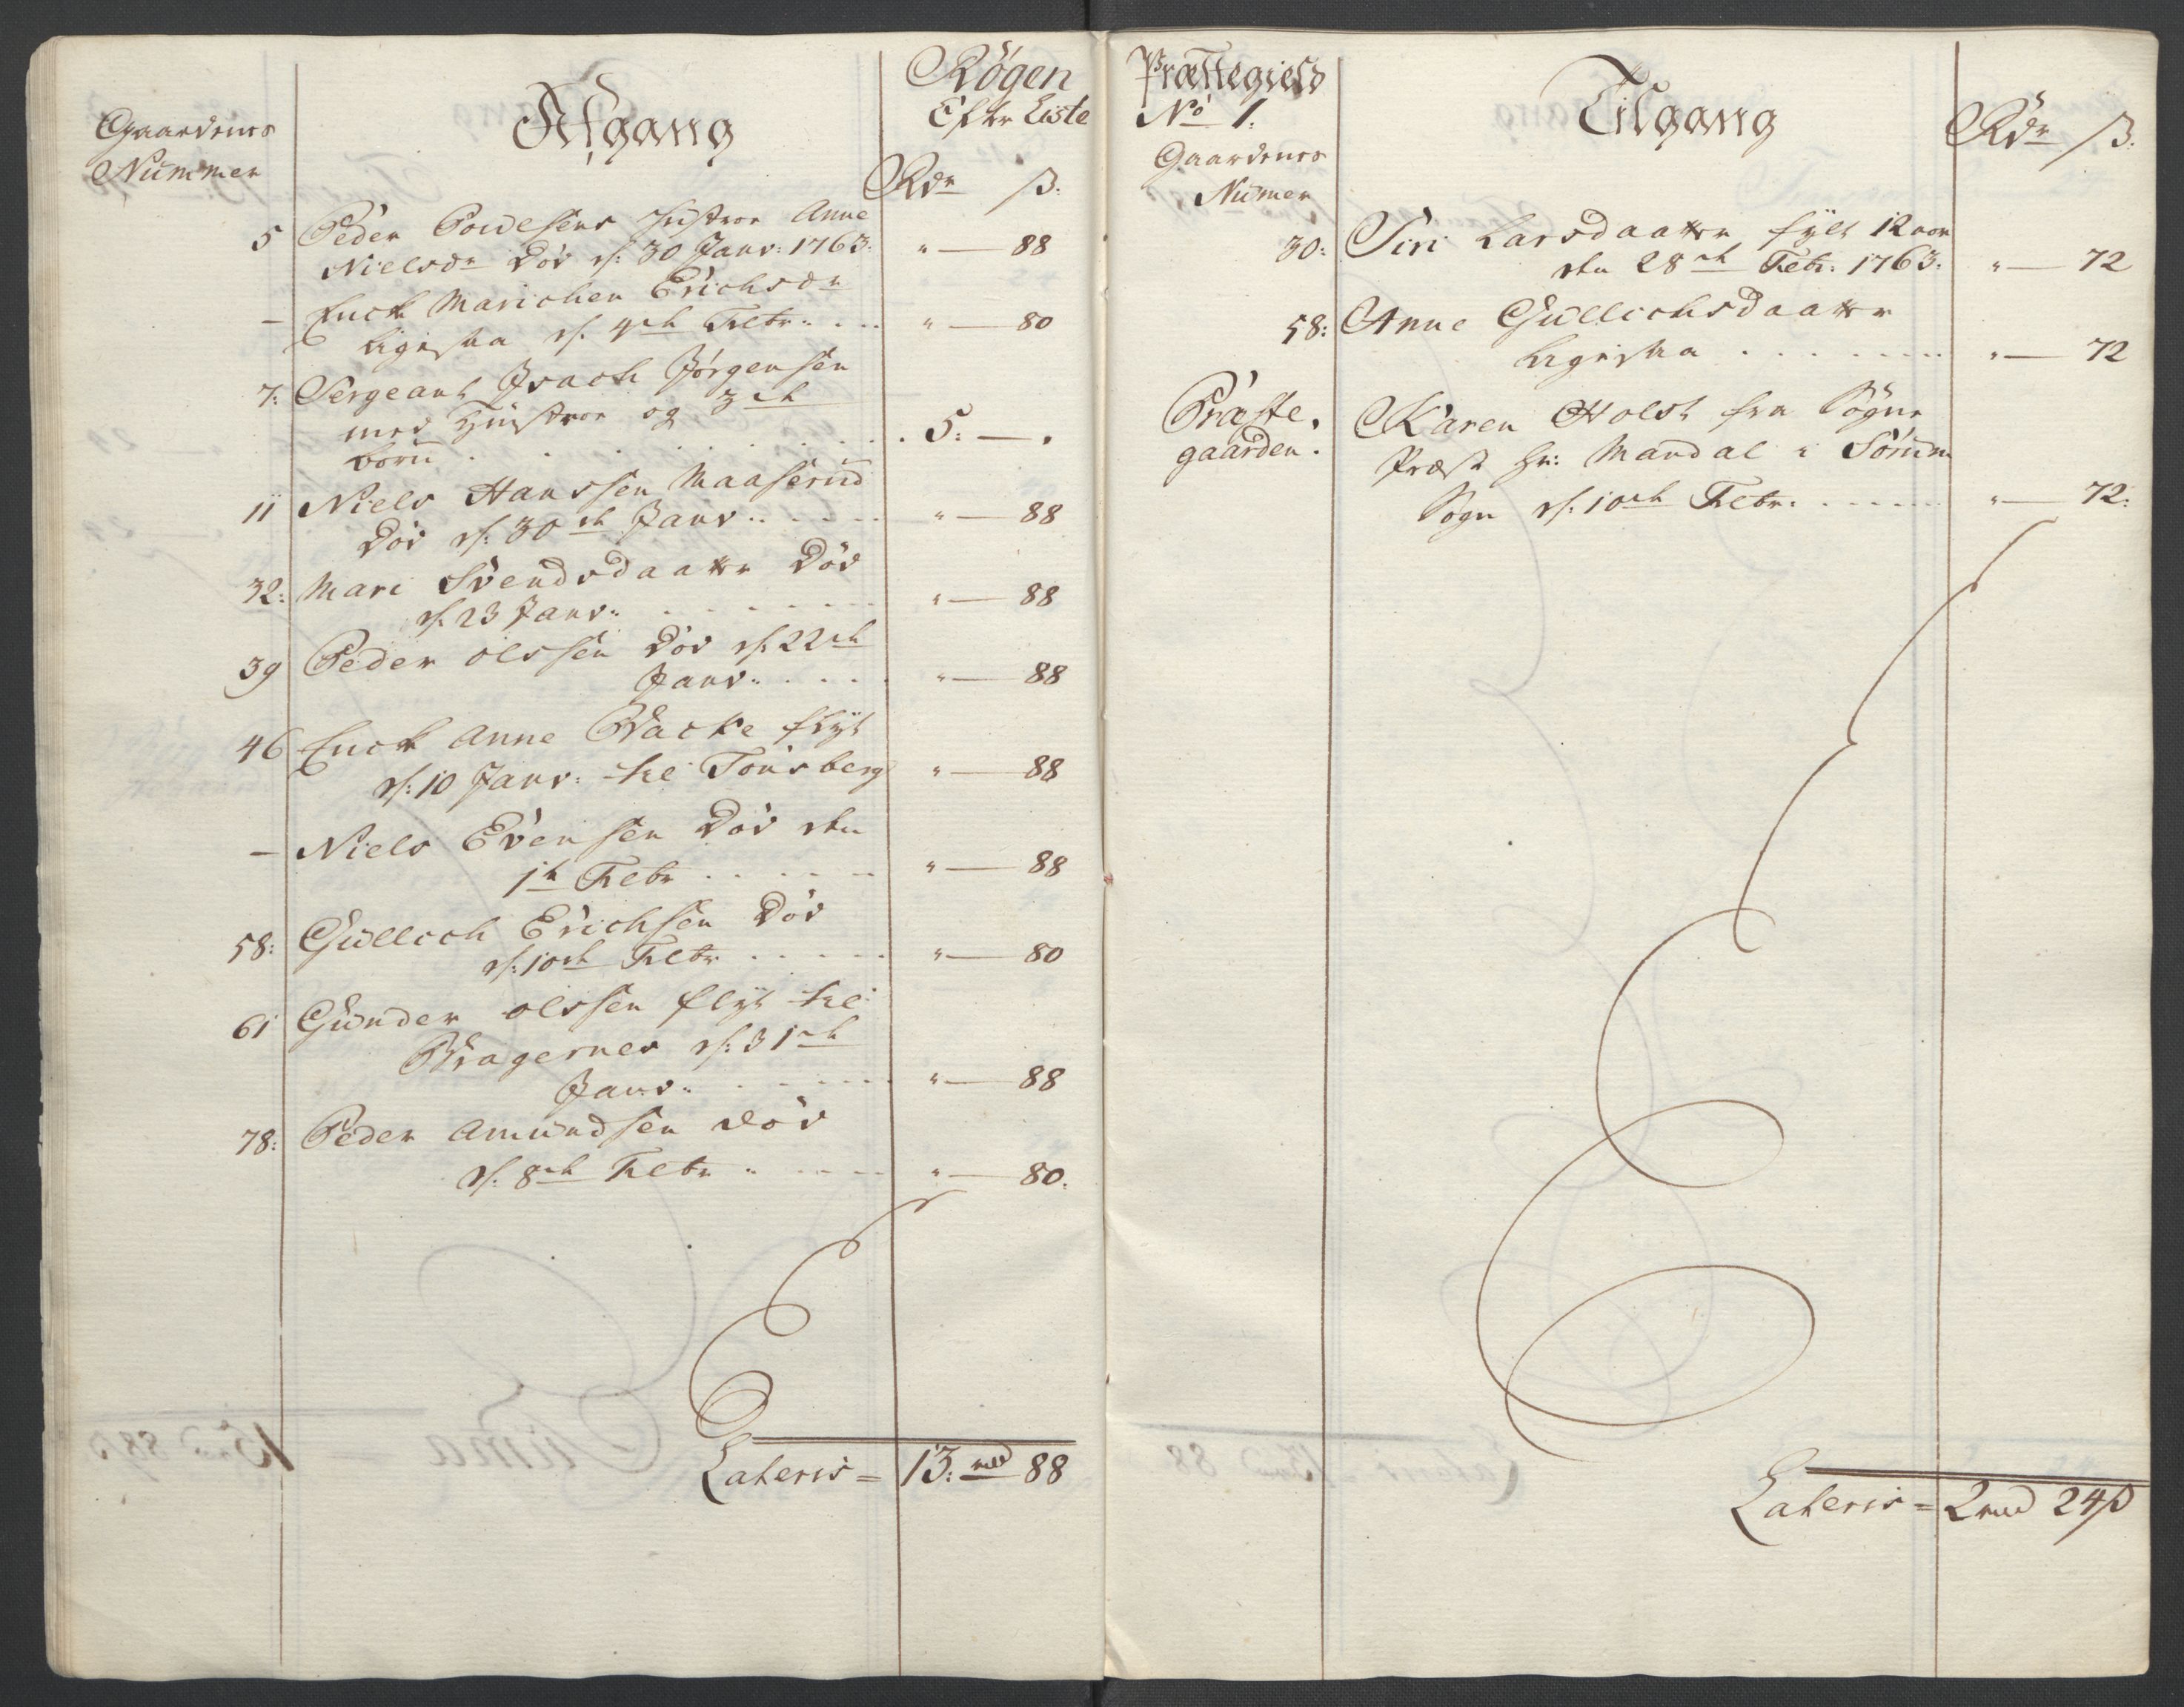 Røgen
Efter Liste
Gaardens
Nummer
Afgang
Rdr ß.
5 Peder Powelsens Hustroe Anne
Nielsdr Død d: 30 Janv: 1763. " — 88
— Encke Marichen Erichsdr
ligesaa d. 4de Febr: . . . " — 80
7: Sergeant Isach Jørgensen
med Hustroe og 3de
børn . . . . . . . 5: — .
11 Niels Hanssen Maaserud
Død d: 30te Janv: . . . . " — 88
32: Mari Svendsdaatter Død
d. 23 Janv: . . . . . . " — 88
39 Peder olssen Død d. 22de
Janv: . . . . " — 88
46 Encke Anne Backe flyt
d: 10 Janv: til Tønsberg " — 88
— Niels Evensen Død den
1te Febr . . . . . " — 88
58: Gullich Erichsen Død
d: 10de Febr . . . . . " — 80
61 Gunder olssen flyt til
Bragernes d: 31te
Janv: . . . . . . " — 88
78: Peder Amundsen død
d. 8de Febr . . . . " — 80.
Lateris = 13: rd 88
Præstegield
No 1.
Gaardens
Numer
Tilgang
Rdr ß.
30: Siri Larsdaatter fylt 12 aar
den 28de Febr: 1763. " — 72
58: Anne Gullichsdaatter
ligesaa . . . . . . . " — 72
Præste.
gaarden.
Karen Holst fra Sogne
Præst Hr: Mandal i Sørum
Sogn d: 10de Febr: . . . . . . " — 72:
Lateris = 2 rd 24 ß